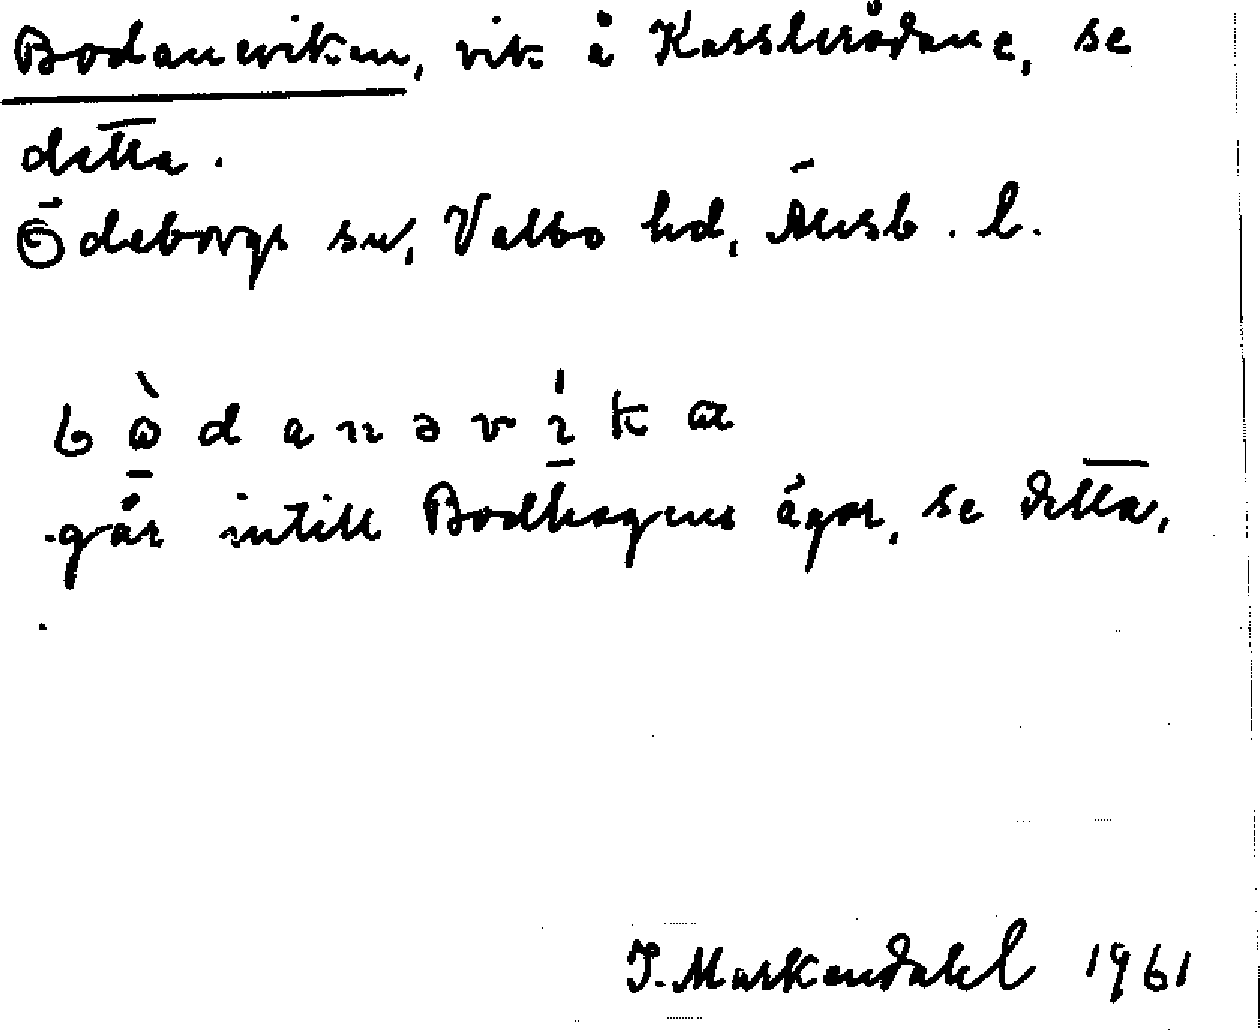 Bodaneviken, vik å Kasslerådane, se
detta.
Ödeborgs sn, Valbo hd, Älvsb. l.
bòdanəvíka
går intill Bodhagens ägor, se detta,
I. Markendahl 1961